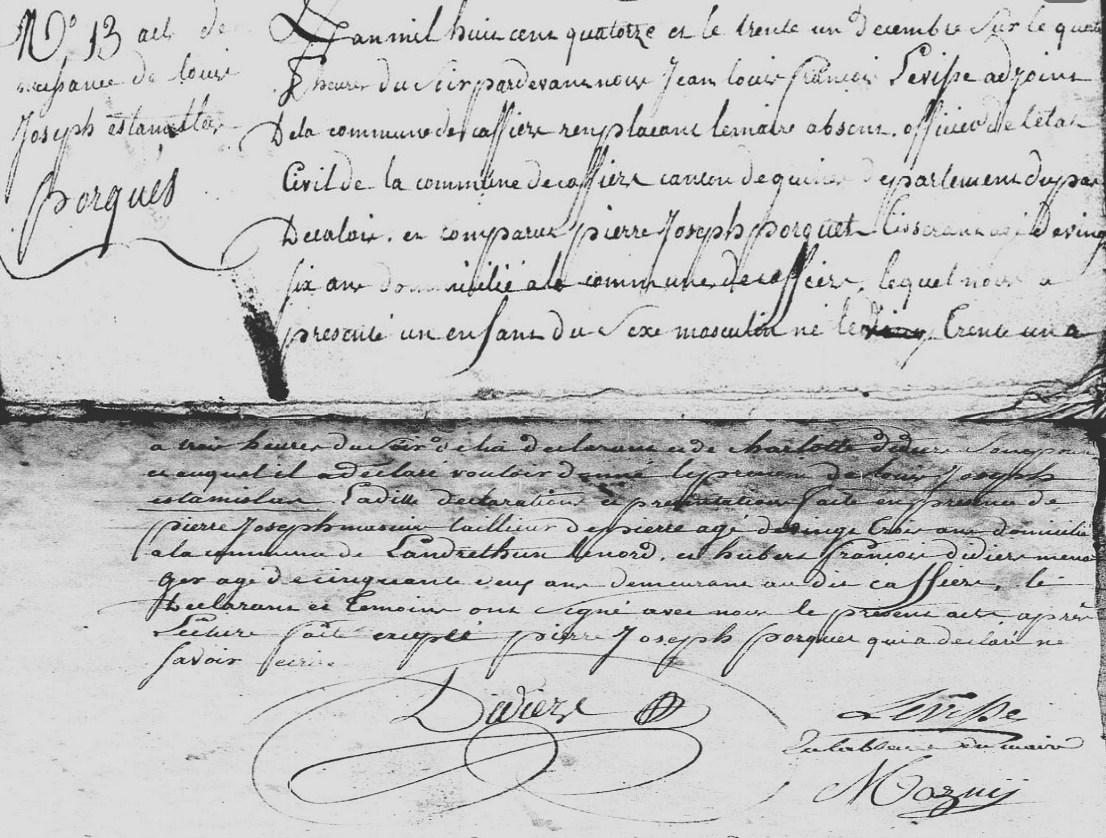 N° 13 acte de
naissance de louis
Joseph estanislas
porquet
L'an mil huit cent quatorze et le trente un decembre sur le quatre
heures du soir pardevant nous Jean louis françois Levisse adjoint
De la commune de caffiers remplacant lemaire absent, officier de l'état
Civil de la commune de caffiers canton de guines departement du pas
De calais, est comparut pierre Joseph porquet tisserant agé de vingt
six ans domicilié a la commune de caffiers, lequel nous a
presenté un enfant du sexe masculin né le trente un a
a trois heures du soir de lui declarant et de charlotte didiers son epouse
et auquel il a declaré vouloir donné le prenom de louis Joseph
estanislas Laditte declaration et presentation faite en presence de
pierre Joseph tailleur de pierre agé de vingt trois ans domicilié
a la commune de Landrethun lenord, et hubert françois didiers mena
ger agé de cinquante deux ans demeurant au dit caffiers, le
Declarant et temoins ont signé avec nous le present acte après
Lecture fait excepté pierre Joseph porquet qui a declaré ne
savoir ecrire
Didiers
Levisse
en l'absence du maire